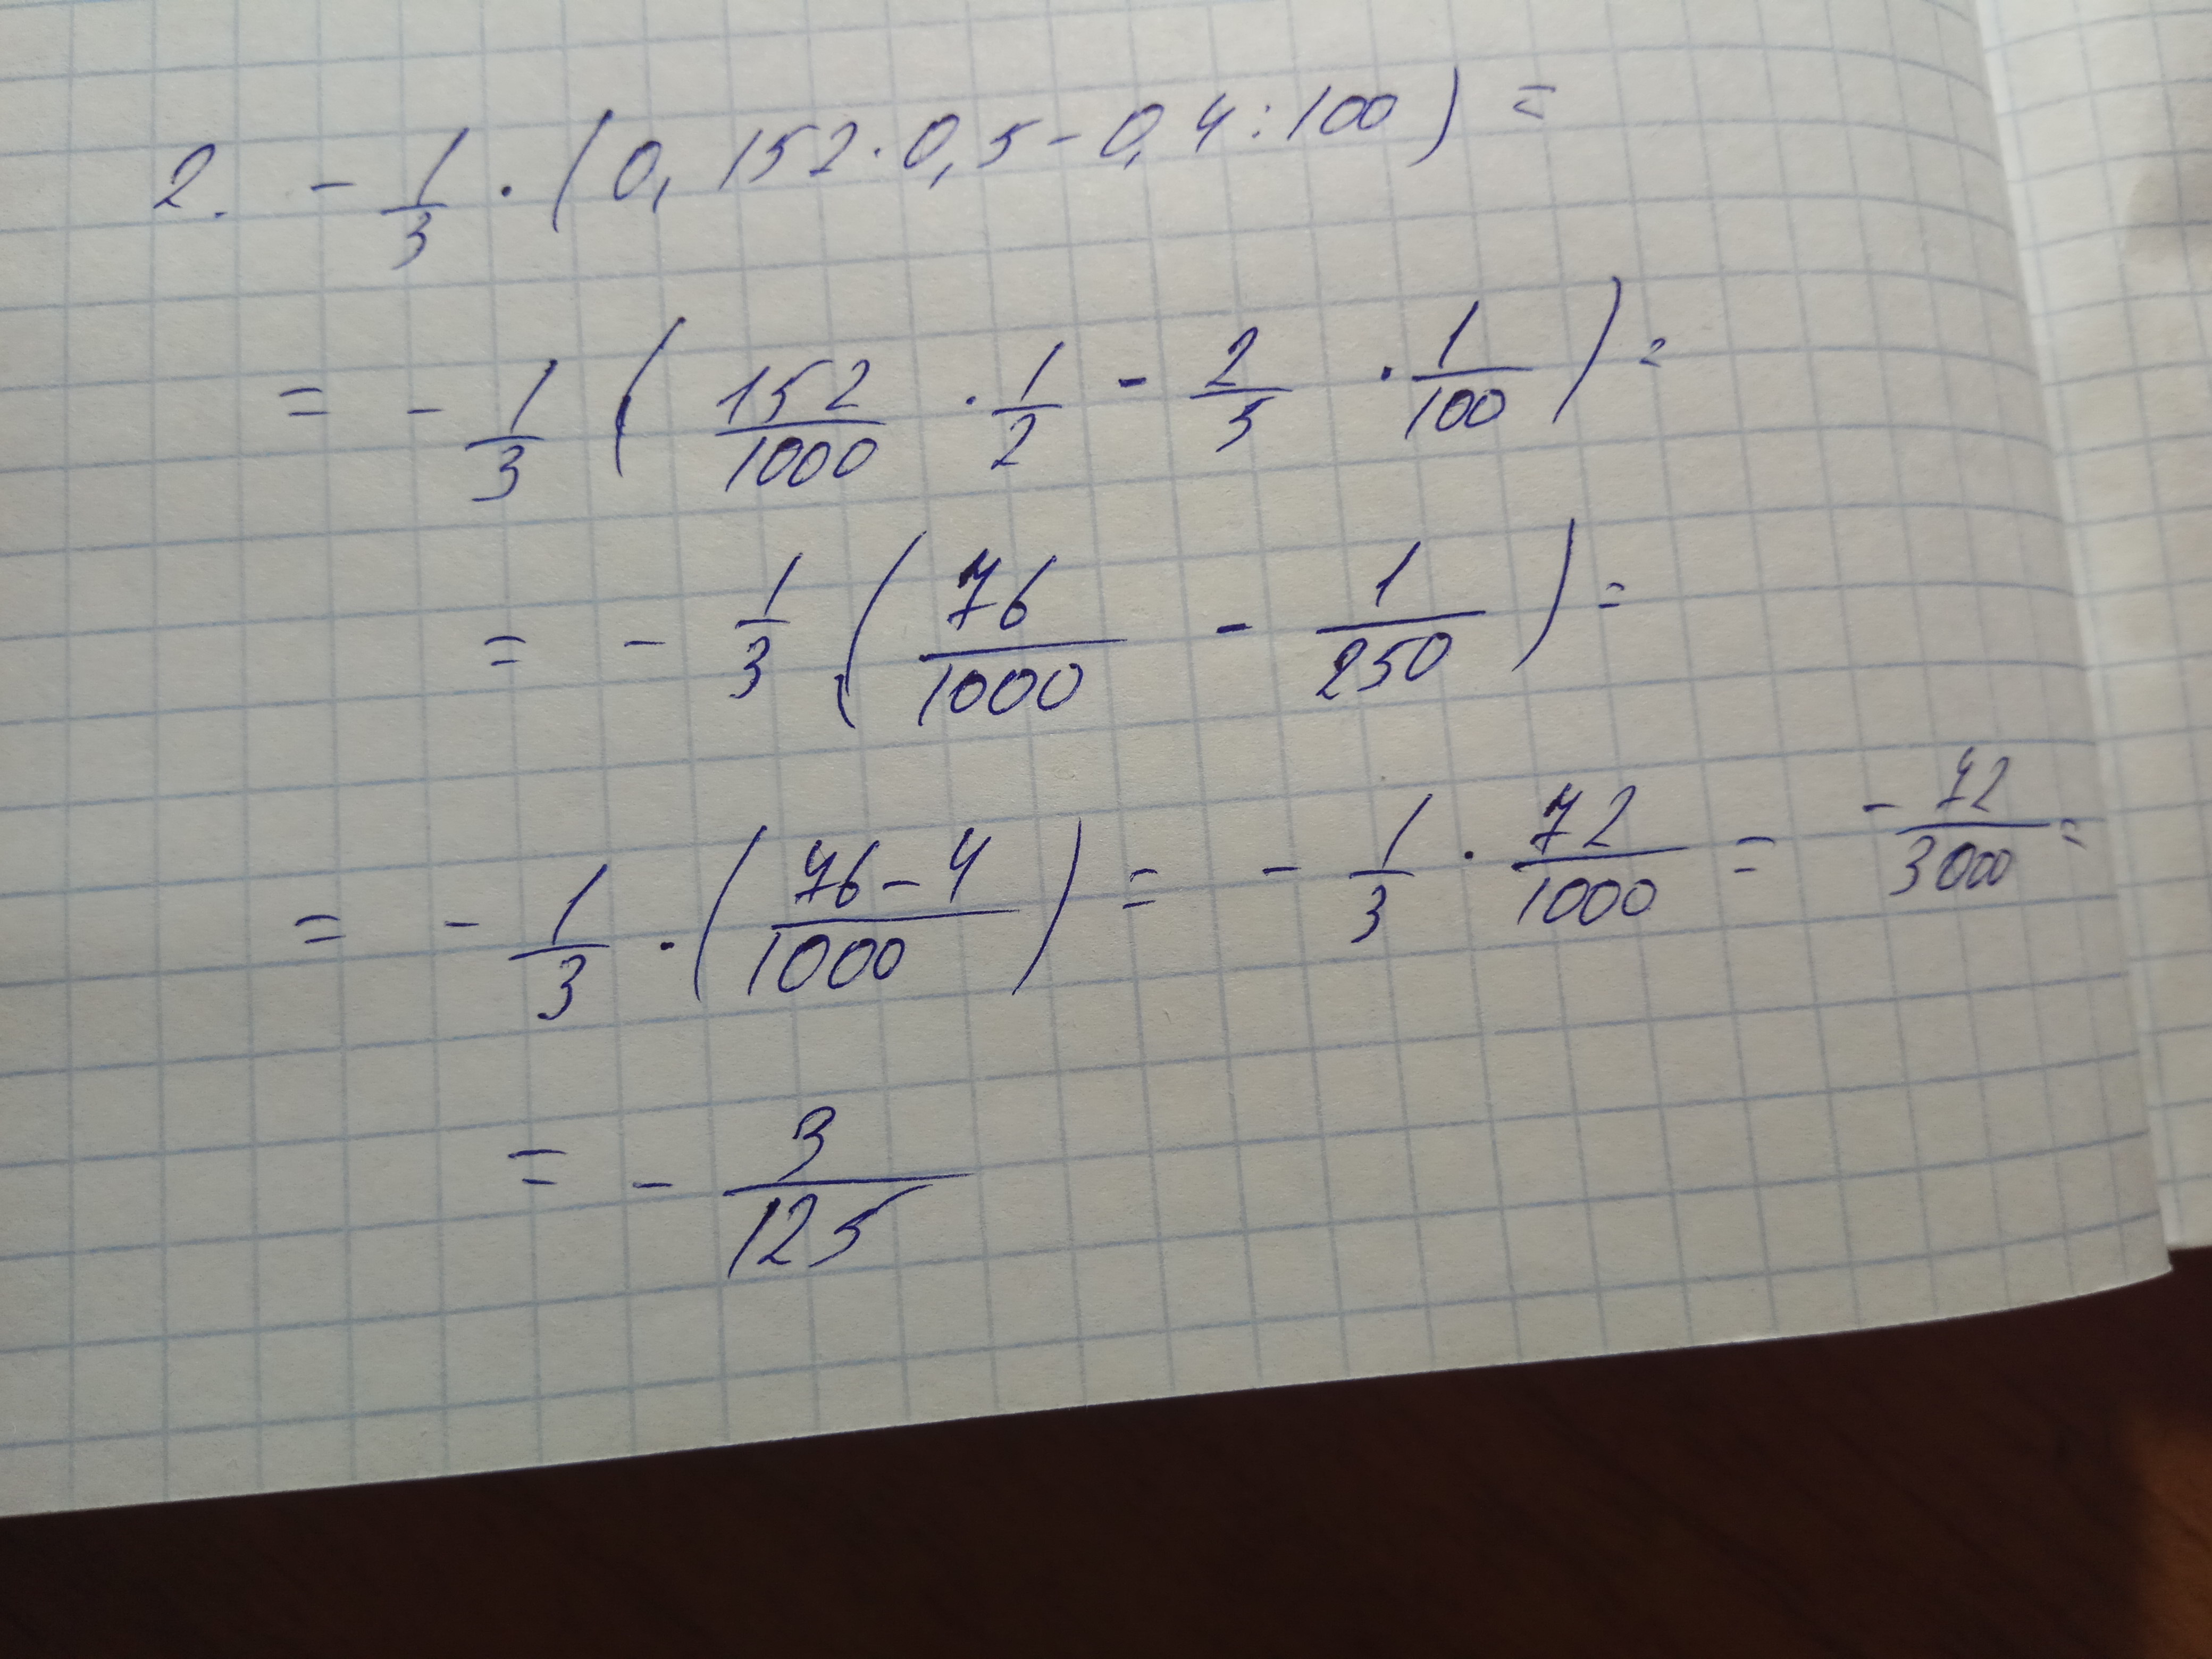 2. - 1/3 · (0,152·0,5-0,4:100) =
= - 1/3 ( 152/1000 · 1/2 - 2/5 · 1/100 ) =
= - 1/3 ( 76/1000 - 1/250 ) =
= - 1/3 · ( 76-4/1000 ) = - 1/3 · 72/1000 = - 72/3000 =
= - 3/125